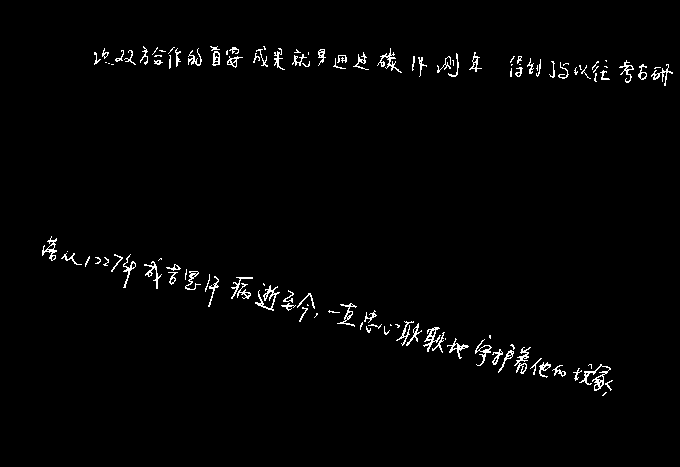 次双方合作的首要成果就是通过碳14测年 得到了与以往考古研
落从1227年成吉思汗病逝至今,一直忠心耿耿地守护着他的坟冢,